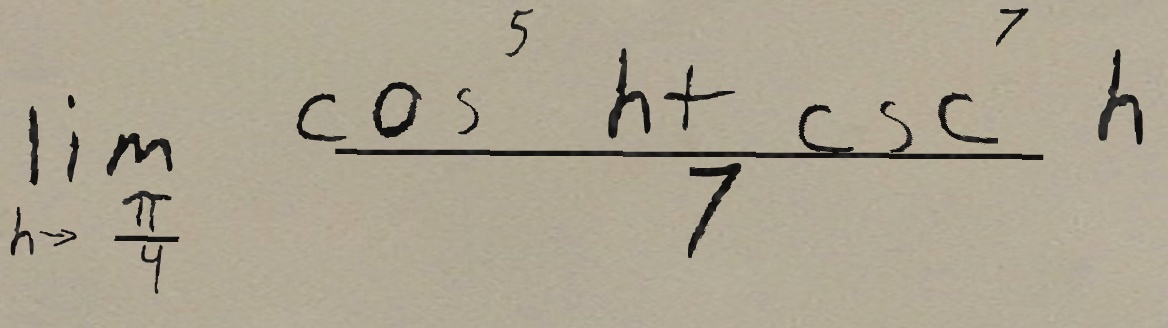 \lim_{h \to \frac{\pi}{4}} \frac{\cos^5 h + \csc^7 h}{7}